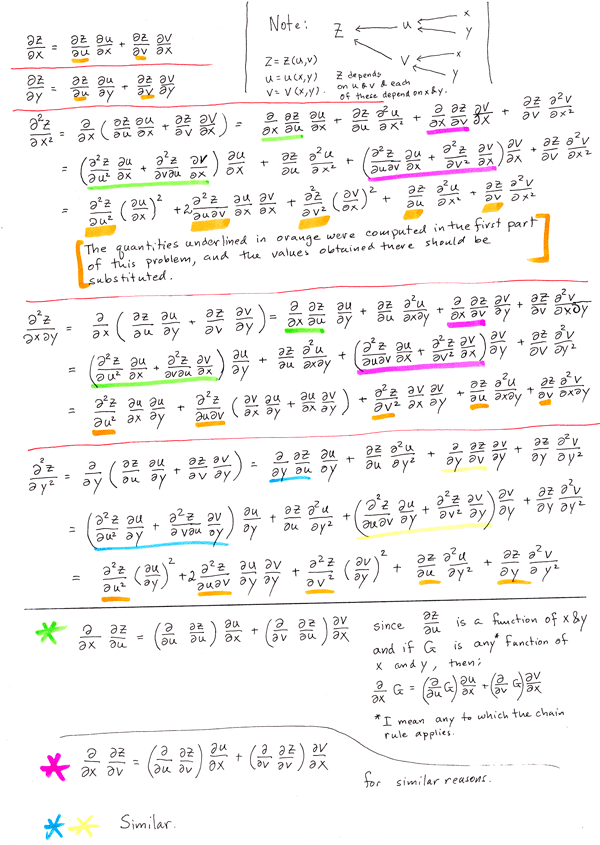 ∂z/∂x = ∂z/∂u ∂u/∂x + ∂z/∂v ∂v/∂x
∂z/∂y = ∂z/∂u ∂u/∂y + ∂z/∂v ∂v/∂y
Note:
Z ← u ← x
y
v ← x
y
Z = Z(u,v)
u = u(x,y)
v = v(x,y).
Z depends
on u & v & each
of these depend on x & y.
∂²z/∂x² = ∂/∂x (∂z/∂u ∂u/∂x + ∂z/∂v ∂v/∂x) = ∂/∂x ∂z/∂u ∂u/∂x + ∂z/∂u ∂²u/∂x² + ∂/∂x ∂z/∂v ∂v/∂x + ∂z/∂v ∂²v/∂x²
= (∂²z/∂u² ∂u/∂x + ∂²z/∂v∂u ∂v/∂x) ∂u/∂x + ∂z/∂u ∂²u/∂x² + (∂²z/∂u∂v ∂u/∂x + ∂²z/∂v² ∂v/∂x) ∂v/∂x + ∂z/∂v ∂²v/∂x²
= ∂²z/∂u² (∂u/∂x)² + 2 ∂²z/∂u∂v ∂u/∂x ∂v/∂x + ∂²z/∂v² (∂v/∂x)² + ∂z/∂u ∂²u/∂x² + ∂z/∂v ∂²v/∂x²
[The quantities underlined in orange were computed in the first part
of this problem, and the values obtained there should be
substituted.]
∂²z/∂x∂y = ∂/∂x (∂z/∂u ∂u/∂y + ∂z/∂v ∂v/∂y) = ∂/∂x ∂z/∂u ∂u/∂y + ∂z/∂u ∂²u/∂x∂y + ∂/∂x ∂z/∂v ∂v/∂y + ∂z/∂v ∂²v/∂x∂y
= (∂²z/∂u² ∂u/∂x + ∂²z/∂v∂u ∂v/∂x) ∂u/∂y + ∂z/∂u ∂²u/∂x∂y + (∂²z/∂u∂v ∂u/∂x + ∂²z/∂v² ∂v/∂x) ∂v/∂y + ∂z/∂v ∂²v/∂y²
= ∂²z/∂u² ∂u/∂x ∂u/∂y + ∂²z/∂u∂v (∂v/∂x ∂u/∂y + ∂u/∂x ∂v/∂y) + ∂²z/∂v² ∂v/∂x ∂v/∂y + ∂z/∂u ∂²u/∂x∂y + ∂z/∂v ∂²v/∂x∂y
∂²z/∂y² = ∂/∂y (∂z/∂u ∂u/∂y + ∂z/∂v ∂v/∂y) = ∂/∂y ∂z/∂u ∂u/∂y + ∂z/∂u ∂²u/∂y² + ∂/∂y ∂z/∂v ∂v/∂y + ∂z/∂y ∂²v/∂y²
= (∂²z/∂u² ∂u/∂y + ∂²z/∂v∂u ∂v/∂y) ∂u/∂y + ∂z/∂u ∂²u/∂y² + (∂²z/∂u∂v ∂u/∂y + ∂²z/∂v² ∂v/∂y) ∂v/∂y + ∂z/∂y ∂²v/∂y²
= ∂²z/∂u² (∂u/∂y)² + 2 ∂²z/∂u∂v ∂u/∂y ∂v/∂y + ∂²z/∂v² (∂v/∂y)² + ∂z/∂u ∂²u/∂y² + ∂z/∂y ∂²v/∂y²
* ∂/∂x ∂z/∂u = (∂/∂u ∂z/∂u) ∂u/∂x + (∂/∂v ∂z/∂u) ∂v/∂x
since ∂z/∂u is a function of x & y
and if G is any* function of
x and y, then:
∂/∂x G = (∂/∂u G) ∂u/∂x + (∂/∂v G) ∂v/∂x
*I mean any to which the chain
rule applies.
* ∂/∂x ∂z/∂v = (∂/∂u ∂z/∂v) ∂u/∂x + (∂/∂v ∂z/∂v) ∂v/∂x
for similar reasons.
* * Similar.